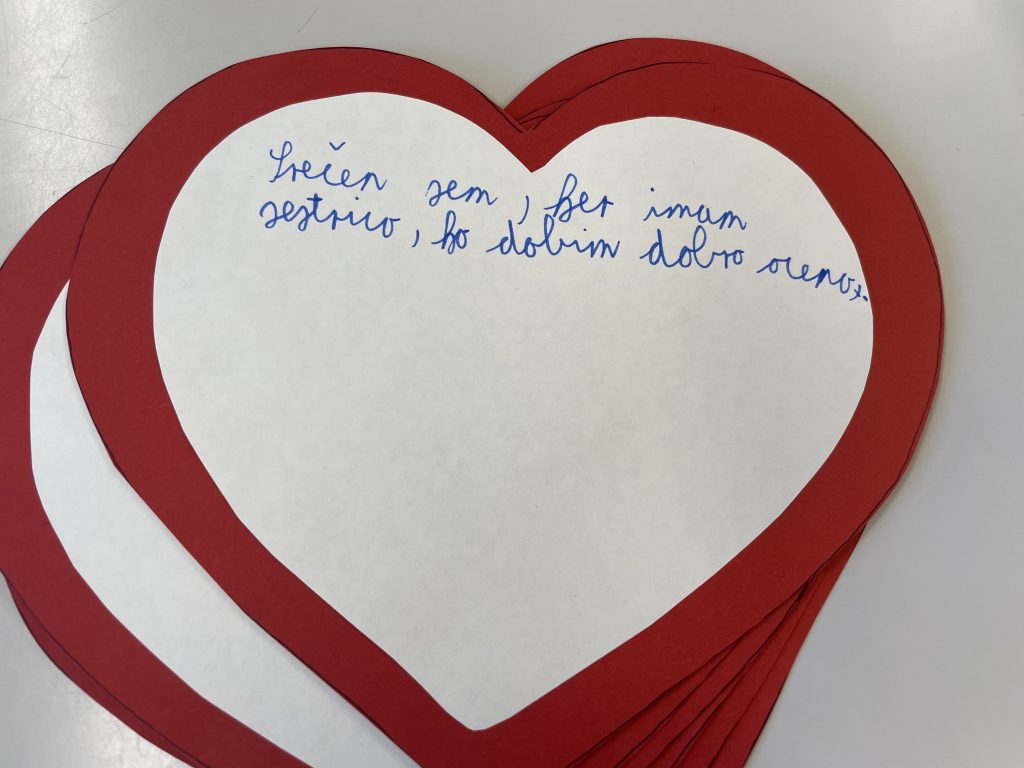 Srečen sem, ker imam
sestrico, ko dobim dobro oceno.